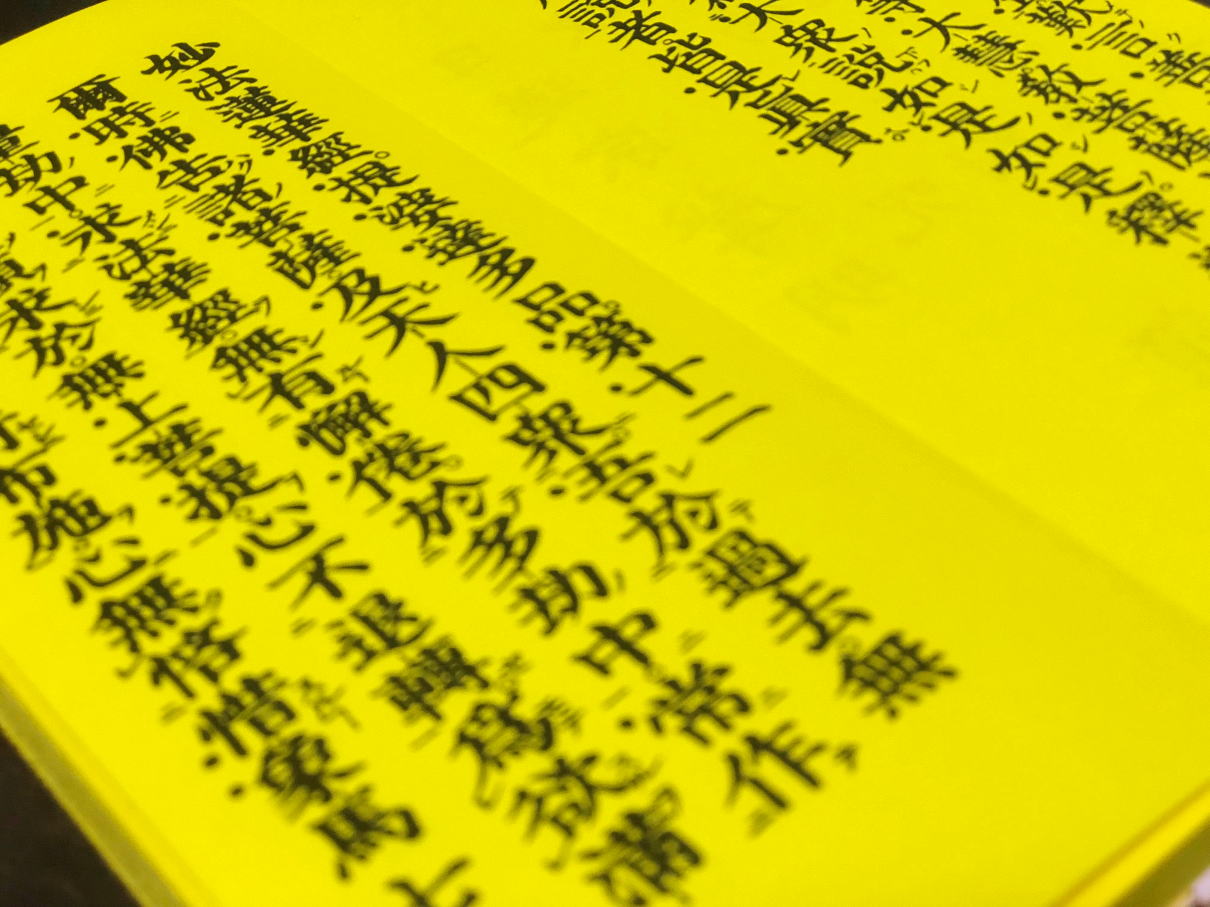 歎言善
大慧教菩薩
大衆說如是如是釋
說者皆是眞實
妙法蓮華經提婆達多品第十二
爾時佛告諸菩薩及天人四衆吾於過去無
量劫中求法華經無有懈倦於多劫中常作
願求於無上菩提心不退轉爲欲滿
布施心無悋惜象馬七